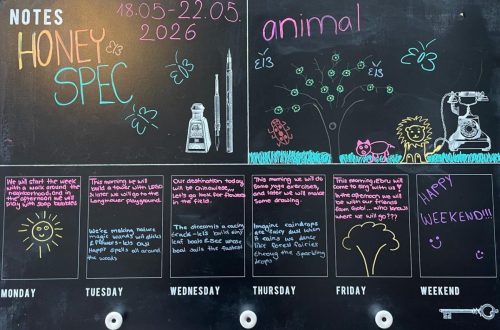 NOTES
18.05-22.05.
2026
HONEY
SPEC
animal
We will start the week
with a walk around the
neighborhood, and in
the afternoon we will
play with soap bubbles
This morning we will
build a tower with LEGO
& later we will go to the
longhouse playground
We're making nature
magic wands with sticks
& flowers - let's cast
Happy spells all around
the woods
Our destination today
will be
Let's go look for flowers
in the field.
The stream is a
track - let's build tiny
leaf boats & see whose
boat sails the fastest
This morning we will do
some yoga exercises,
and later we will make
some drawing.
Imagine raindrops
are fairy dust when
it rains we dance
like forest fairies
the sparkling
drops
This morning, Ebru will
come to sing with us!
In the afternoon we will
be with our friends
from Gobi... who knows
where we will go???
HAPPY
WEEKEND!!!
MONDAY
TUESDAY
WEDNESDAY
THURSDAY
FRIDAY
WEEKEND